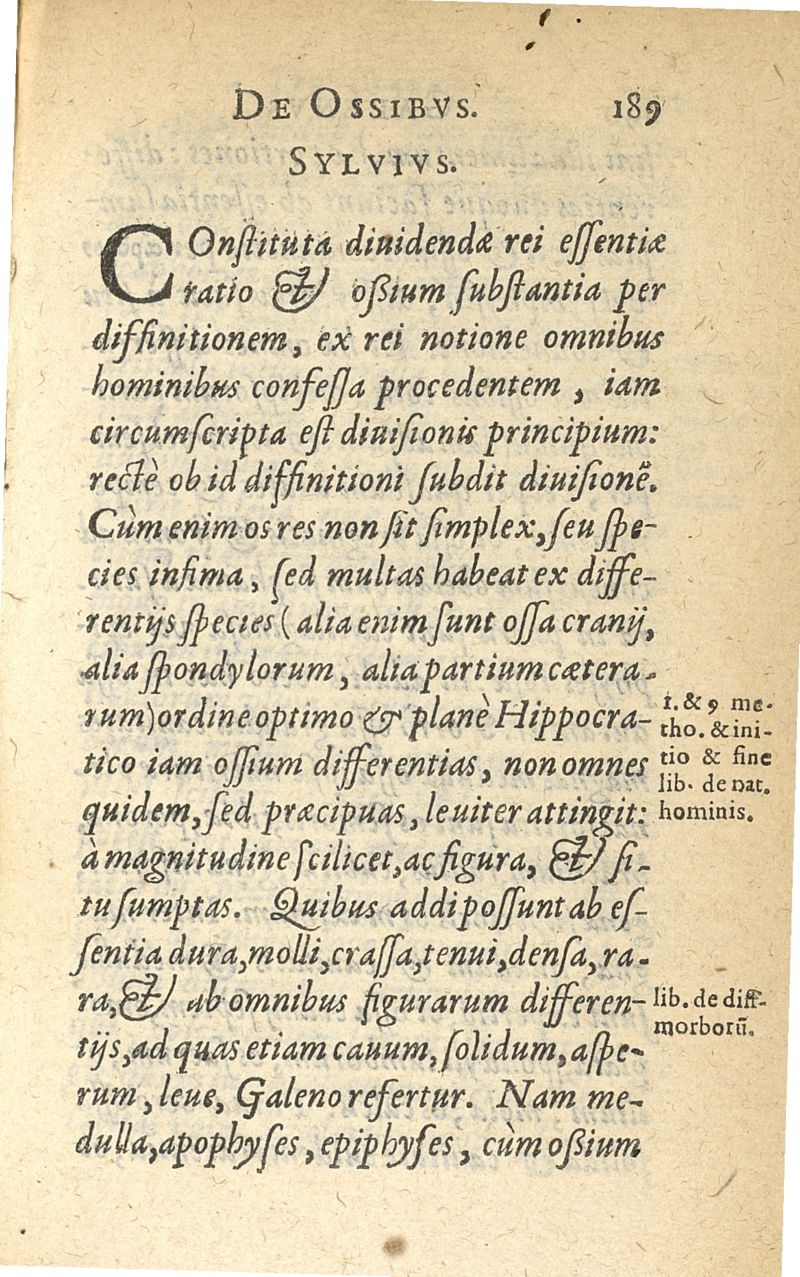 DE OSSIBVS. 189
SYLVIVS.
COnſtituta diuidendæ rei eſſentiæ
ratio & oßium ſubſtantia per
diffinitionem, ex rei notione omnibus
hominibus confeſſa procedentem, iam
circumſcripta eſt diuiſionis principium:
rectè ob id diffinitioni ſubdit diuiſionẽ.
Cùm enim os res non ſit ſimplex, ſeu ſpe-
cies infima, ſed multas habeat ex diffe-
rentijs ſpecies (alia enim ſunt oſſa cranij,
alia ſpondylorum, alia partium cætera-
rum) ordine optimo & planè Hippocra-
tico iam oſſium differentias, non omnes
quidem, ſed præcipuas, leuiter attingit:
à magnitudine ſcilicet, ac figura, & ſi-
tu ſumptas. Quibus addi poſſunt ab eſ-
ſentia dura, molli, craſſa, tenui, denſa, ra-
ra, & ab omnibus figurarum differen-
tijs, ad quas etiam cauum, ſolidum, aſpe-
rum, leue, Galeno refertur. Nam me-
dulla, apophyſes, epiphyſes, cùm oßium
1. & 9 me-
tho. & ini-
tio & fine
lib. de nat.
hominis.
lib. de diff.
morborũ.